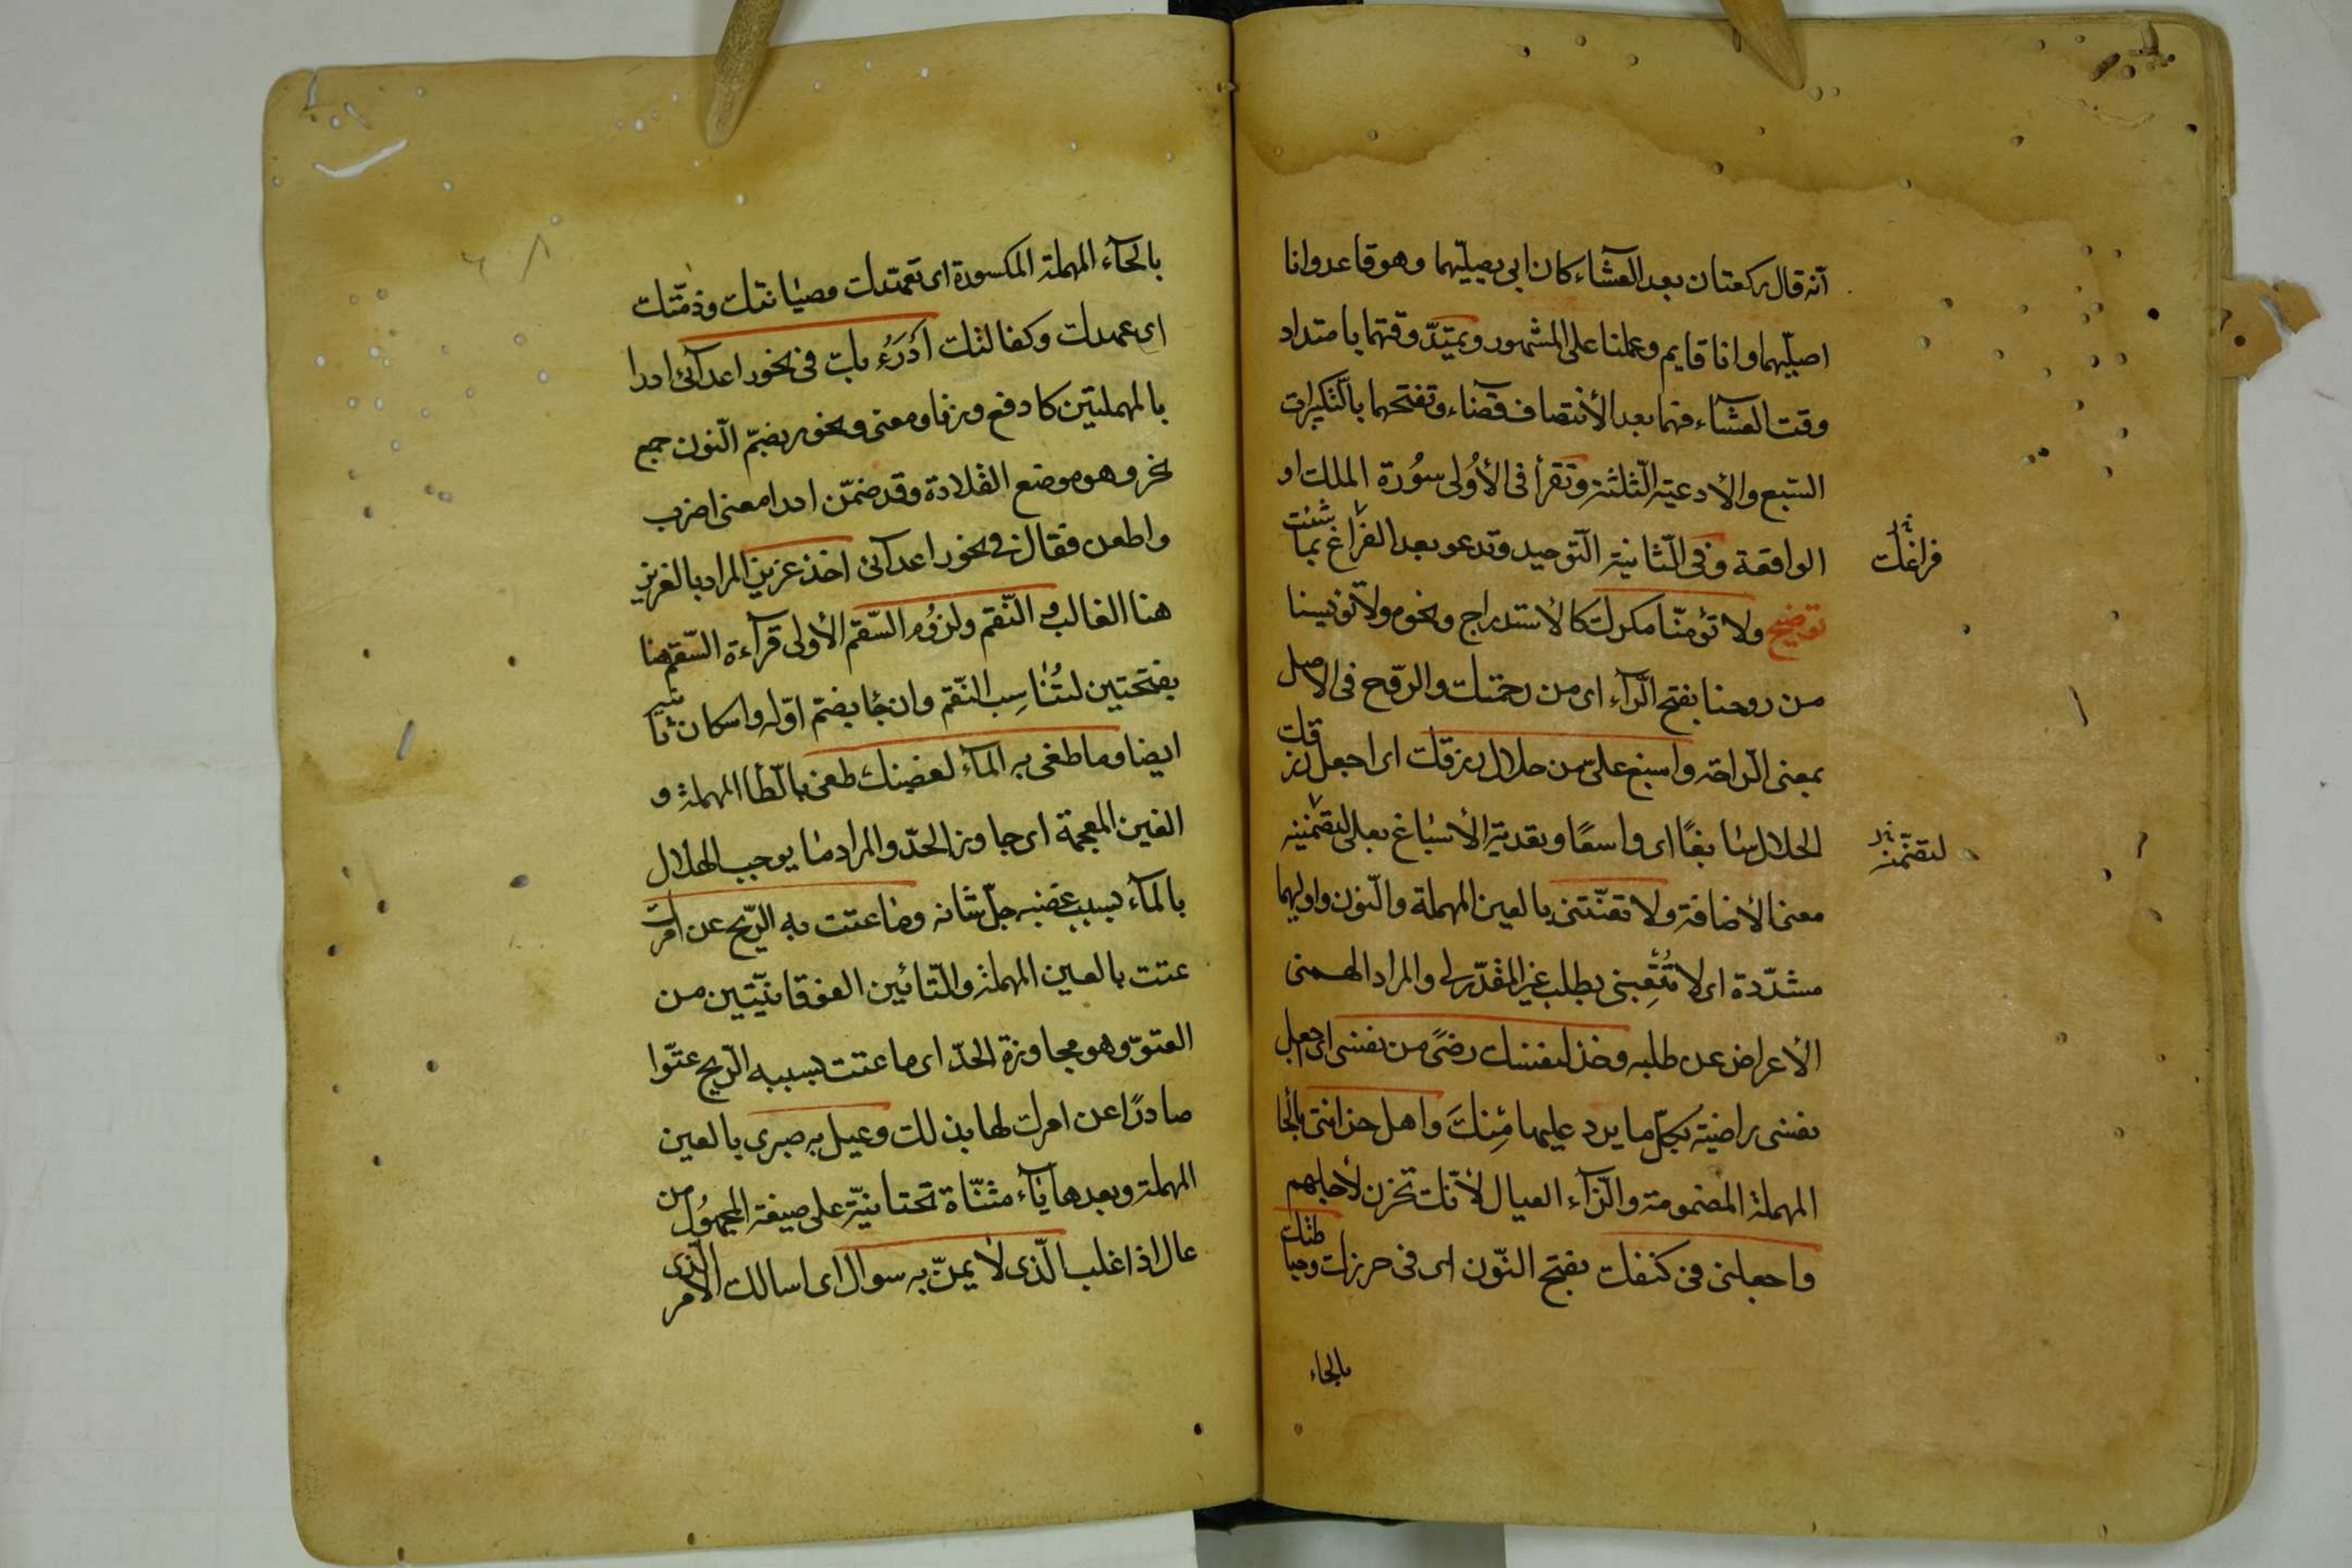 انّه قال ركعتان بعد العشآء كان ابى يصلّيهما وهو قاعد وانا
اصلّيهما وانا قايم وعملنا على المشهور ويمتدّ وقتهما بامتداد
وقت العشآء فهما بعد الأنتصاف قضآء وتفتحهما بالتّكبيرات
السّبع والأدعيه الثّلثة وتقرأ فى الأولى سُورة الملك او
الواقعة وفى الثّانية التّوحيد وتدعو بعد الفراغ بما شئت
فراغك
توضيح ولا تؤمنّا مكرك كالأستدراج ونحوه ولا تؤيسنا
من روحنا بفتح الرّآء اى من رحمتك والرّوح فى الاصل
بمعنى الرّاحة واسبغ علىّ من حلال رزقك اى اجعل رزقك
الحلال سابغًا اى واسعًا وتعدية الأسباغ بعلى لتضمّنه
لتضمّنه
معنى الأضافة ولا تعنّتنى بالعين المهملة والنّون واوليهما
مشدّدة اى لا تُتْعِبنى بطلب غير المقدّر لى والمراد الهمنى
الأعراض عن طلبه وخذ لنفسك رضًى من نفسى اى اجعل
نفسى راضية بكلّ ما يرد عليها مِنكَ واهل حزانتى بالحا
المهملة المضمومة والزّآء العيال لأنّك تحزن لأجلهم
واجعلنى فى كنفك بفتح النّون اى فى حرزك وحياطتك
بالحاء
بالحآء المهملة المكسورة اى تعهّدك وصيانتك وذمّتك
اى عهدك وكفالتك أدْرَءُ بك فى نحور اعدآئى ادرا
بالمهملتين كادفع وزنا ومعنى ونحور بضمّ النّون جمع
نحر وهو موضع القلادة وقد ضمّن ادرا معنى اضرب
واطعن فقال فى نحور اعدآئى اخذ عزيز المراد بالعزيز
هنا الغالب والنّقم ولزوُم السّقم الأولى قرآءة السّقم هنا
بفتحتين لتُناسِب النّقم وان جا بضمّ اوّله واسكان ثانيه
ايضا وما طغى به المآء لغضبك طغى بالطّا المهملة و
الغين المعجمة اى جاوز الحدّ والمراد ما يوجب الهلاك
بالمآء بسبب غضبه جلّ شانه وما عتت به الرّيح عن امرك
عتت بالعين المهملة والتّائين الفوقانيّتين من
العتوّ وهو مجاوزة الحدّ اى ما عتت بسببه الرّيح عتوّا
صادرًا عن امرك لها بذلك وعيل به صبرى بالعين
المهملة وبعدها يآء مثنّاة تحتانيّة على صيغة المجهُول من
عال اذا غلب الّذى لا يمنّ به سواك اى اسالك الامر الّذى